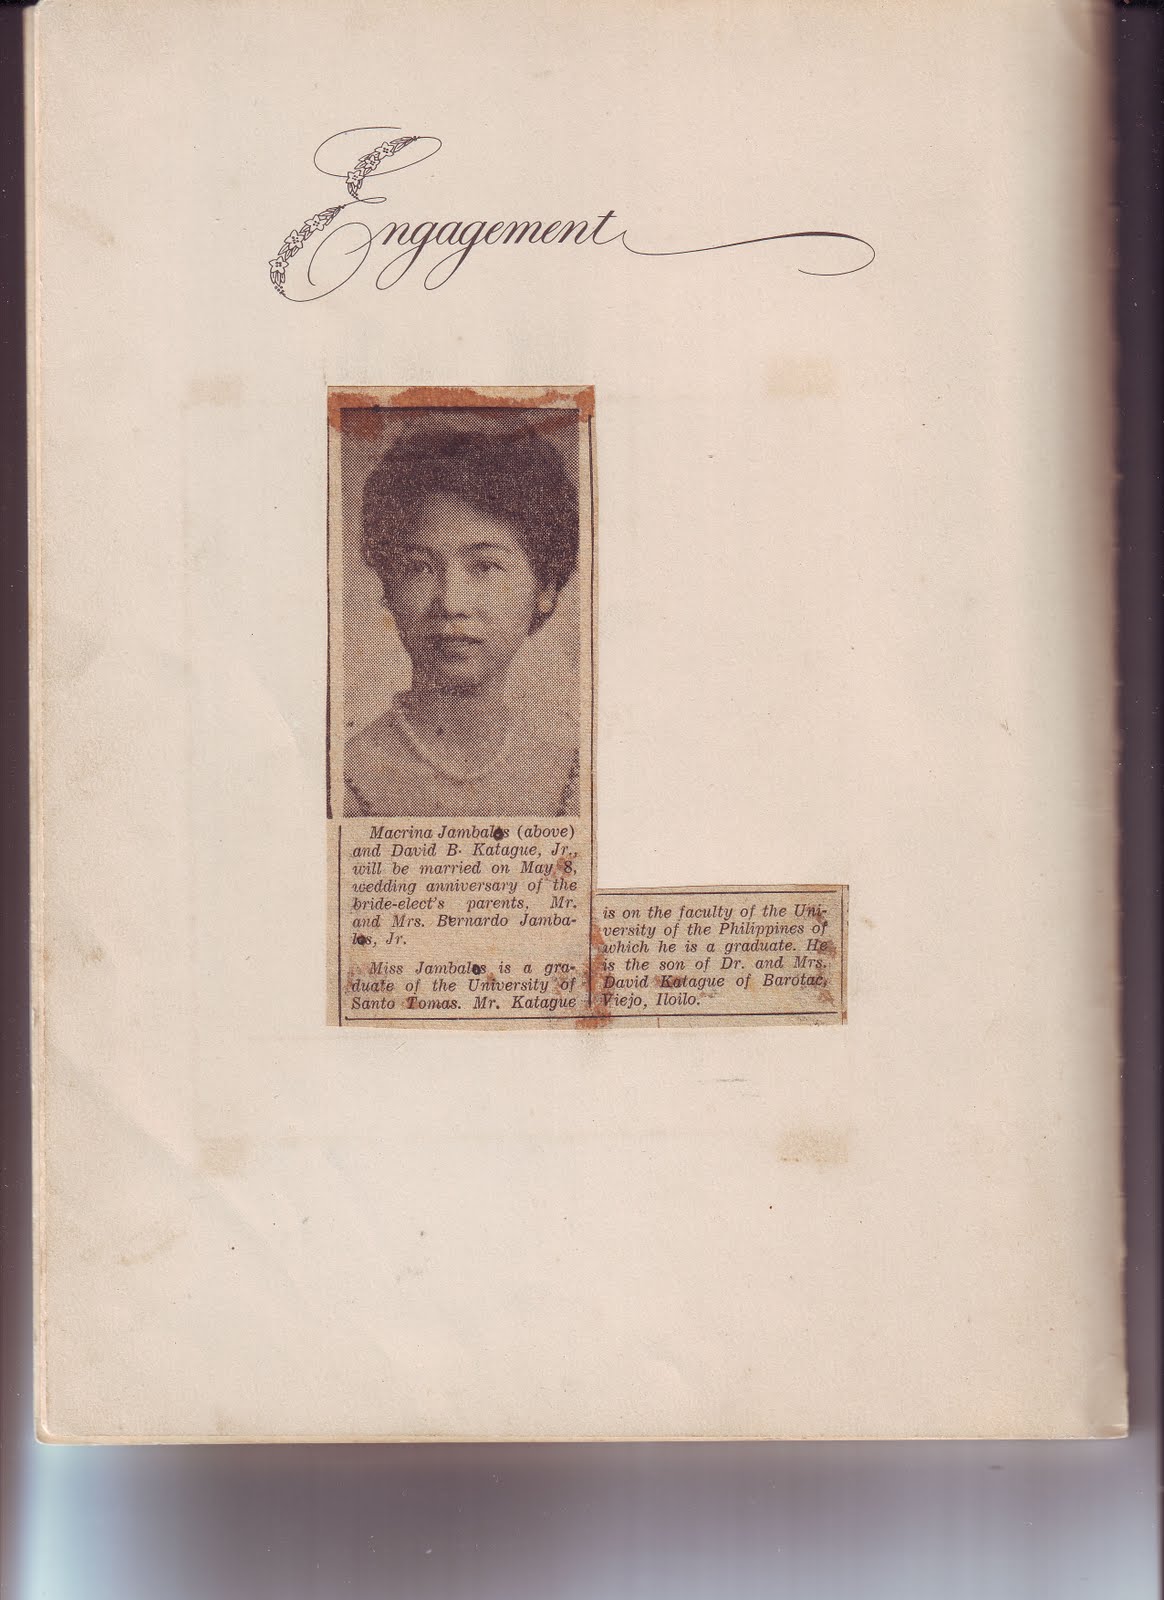 Engagement
Macrina Jambalos (above)
and David B. Katague, Jr.,
will be married on May 8,
wedding anniversary of the
bride-elect's parents, Mr.
and Mrs. Bernardo Jamba-
los, Jr.
Miss Jambalos is a gra-
duate of the University of
Santo Tomas. Mr. Katague
is on the faculty of the Uni-
versity of the Philippines of
which he is a graduate. He
is the son of Dr. and Mrs.
David Katague of Barotac,
Viejo, Iloilo.